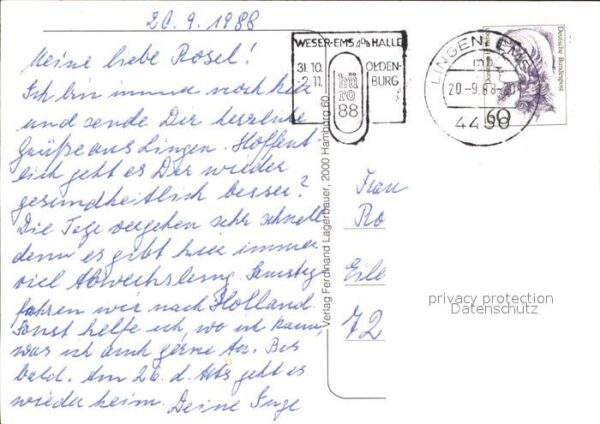 20.9.1988
Meine liebe Rosel!
Ich bin immer noch hier
und sende Dir herzliche
Grüße aus Lingen. Hoffent-
lich geht es Dir wieder
gesundheitlich besser?
Die Tage vergehen sehr schnell
denn es gibt hier immer
viel Abwechslung. Samstag
fahren wir nach Holland.
Sonst helfe ich, wo ich kann,
was ich auch gerne tue. Bis
bald. Am 26. d. Mts geht es
wieder heim. Deine Inge
WESER-EMS HALLE
31.10.
2.11.
OLDEN-
BURG
bü
ro
88
LINGEN, EMS 1
mb
20.-9.88
4450
Deutsche Bundespost
60
Verlag Ferdinand Lagerbauer, 2000 Hamburg 60
Frau
Ro
Eile
72
privacy protection
Datenschutz